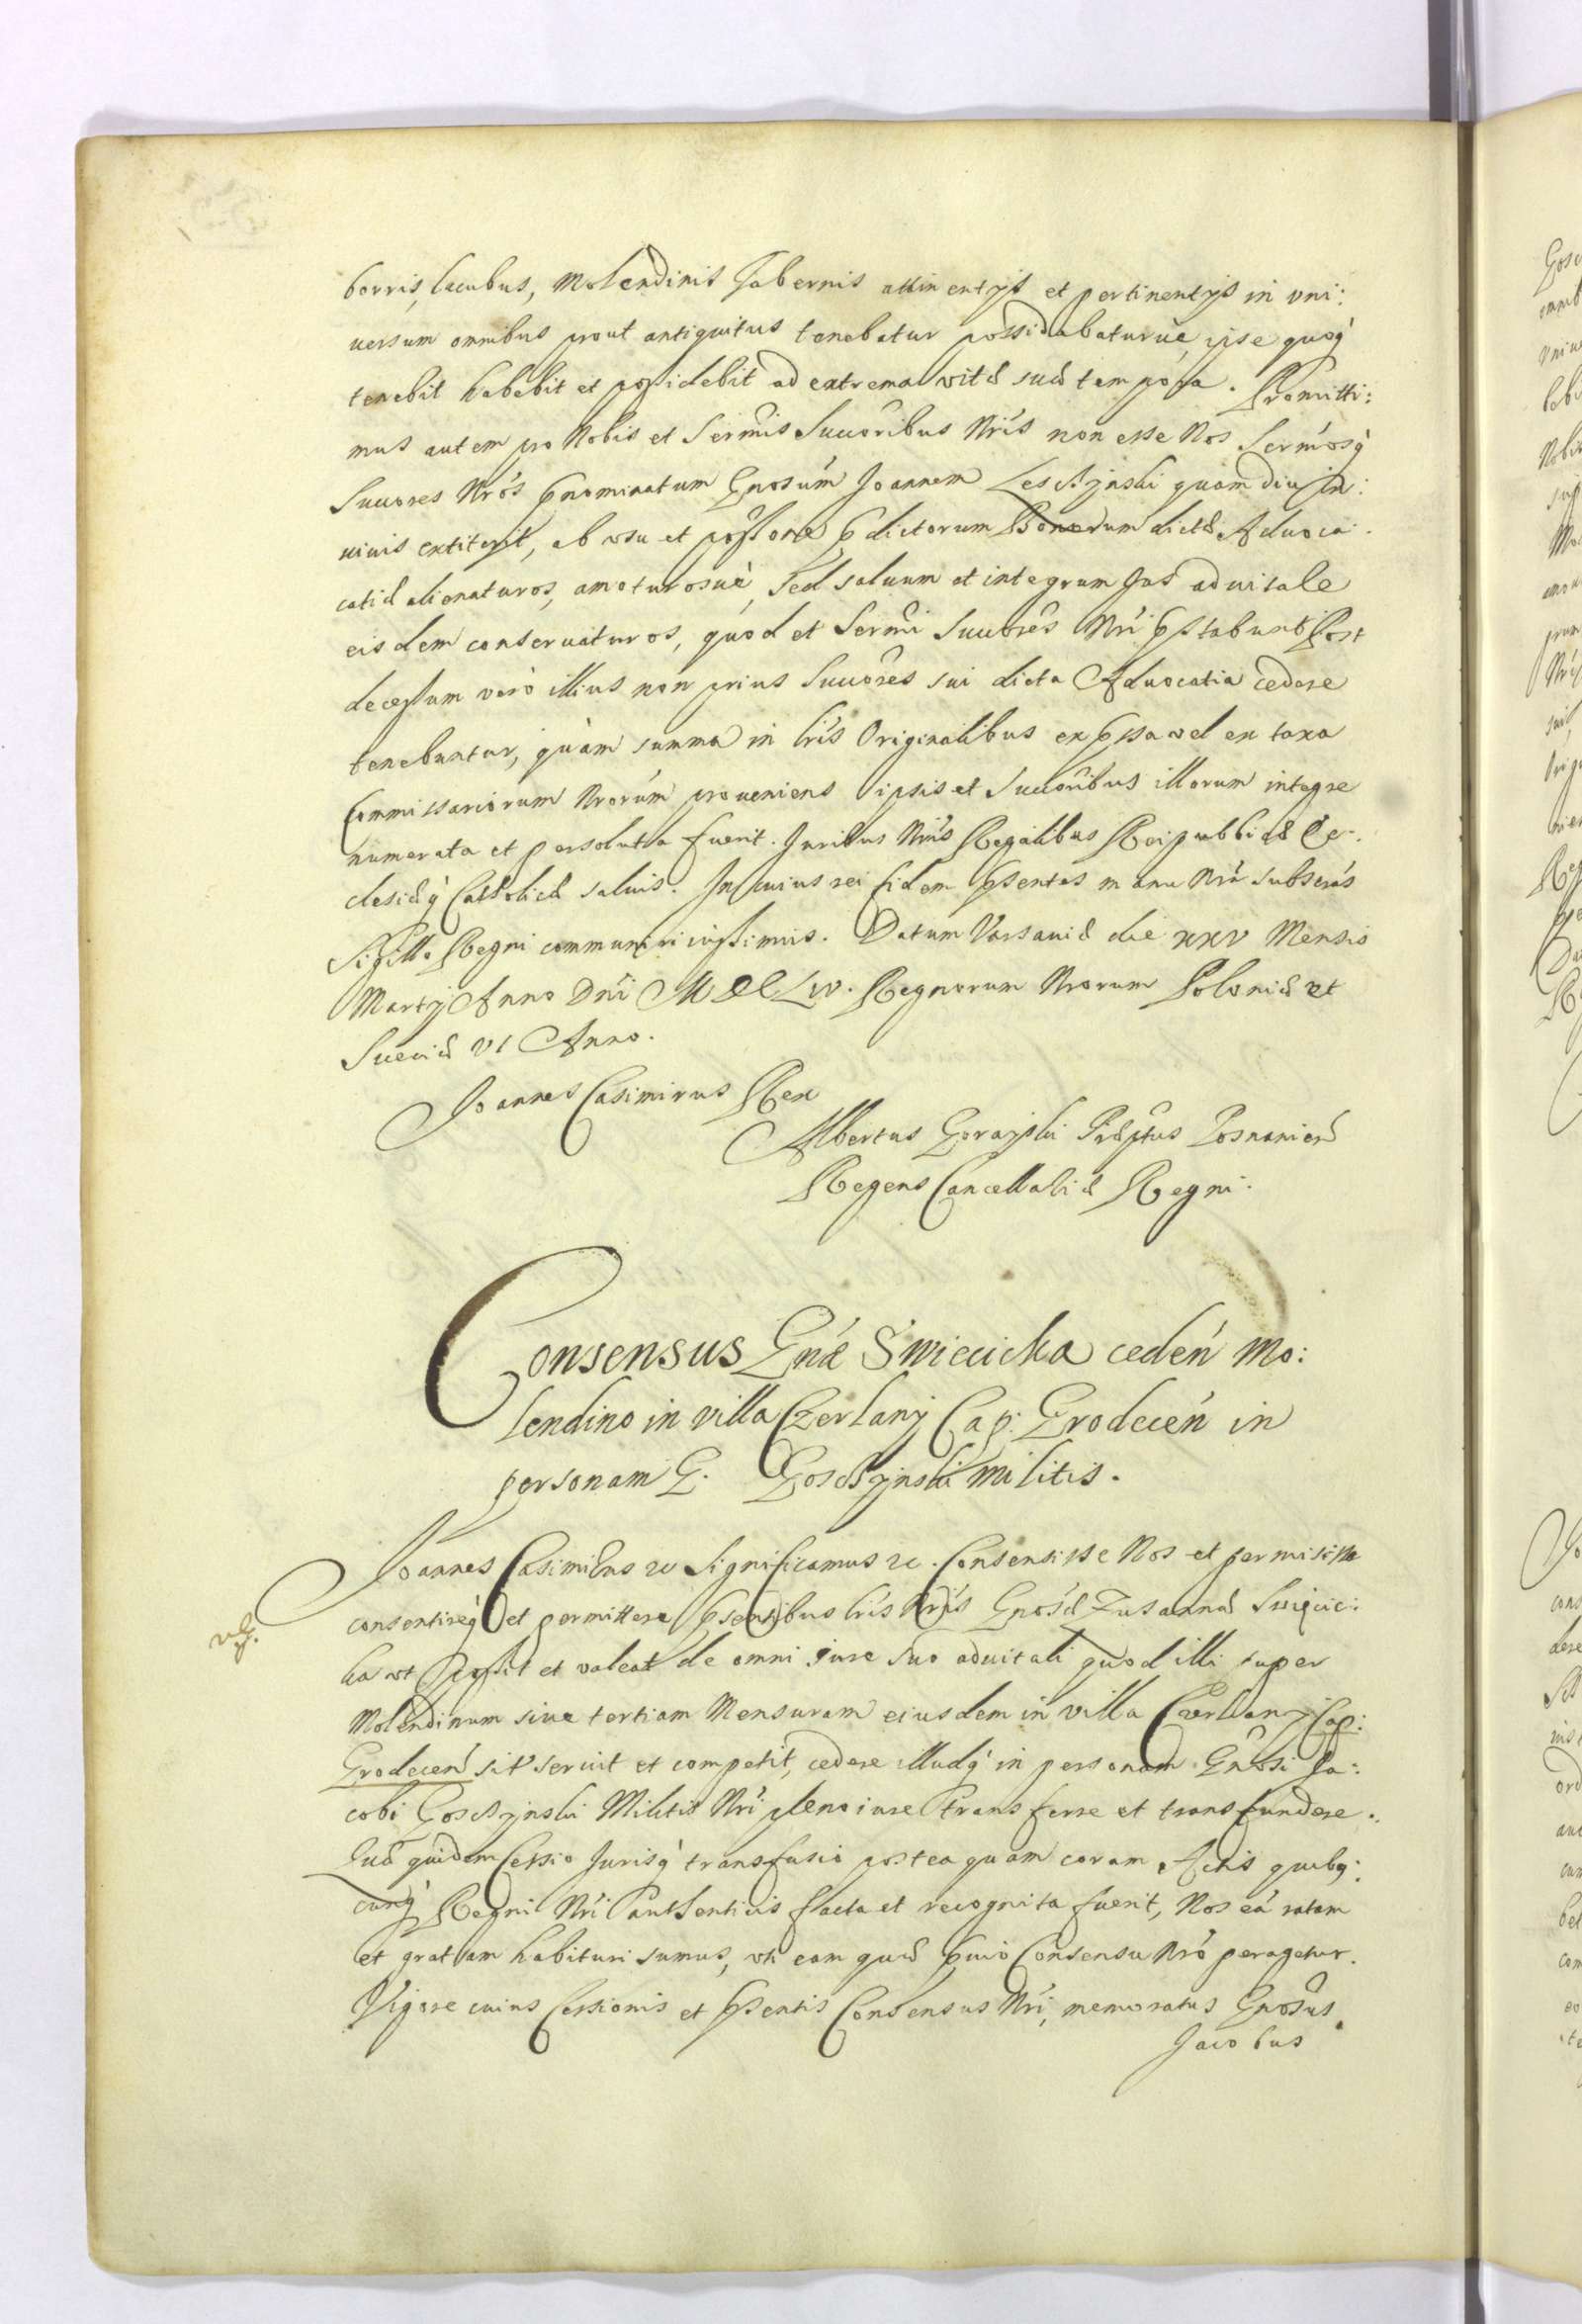 borris, lacubus, Molendinis Tabernis attinentijs et pertinentijs in vni:
uersum omnibus prout antiquitus tenebatur possidebaturuè, ipse quoq́
tenebit habebit et possidebit ad extrema vitæ suæ tempora. Promitti:
mus autem pro Nobis et Sermis Succoribus Nris non esse Nos Sermosq́
Succores Nros pnominatum Gnosum Joannem Leschijnski quam diu in:
uiuis extiterit, ab vsu et possone pdictorum Bonorum dictæ Aduoca:
catiæ alienaturos, amoturosuè, sed saluum et integrum Jus aduitale
eisdem conseruaturos, quod et Sermi Succores Nri pstabunt Post
decessum verò illius non prius Succores sui dicta Aduocatia cedere
tenebuntur, quàm summa in lris Originalibus expssa vel ex taxa
Commissariorum Nrorum proueniens ipsis et Succoribus illorum integre
numerata et persoluta fuerit. Juribus Nris Regalibus Reipublicæ Ec:
clesiæq́ Catholicæ saluis. In cuius rei fidem psentes manu Nra subscrãs
Sigillo Regni communiri iussimus. Datum Varsauiæ die XXV Mensis
Martij Anno Dni MDCLIV. Regnorum Nrorum Poloniæ et
Sueciæ VI Anno.
Joannes Casimirus Rex
Albertus Gorayski Præptus Posnanien
Regens Cancellariæ Regni.
Consensus Gnæ Swiecicka ceden Mo:
lendino in villa Czerlany Cap: Grodecen in
personam G. Goschzynski militis.
Joannes Casimirus etc Significamus etc. Consensisse Nos et permisisse
consentireq́ et permittere psentibus lris Nris Gnosæ Zusannæ Swięcic:
ka vt possit et valeat de omni iure suo aduitali quod illi super
Molendinum siue tertiam Mensuram eiusdem in villa Czerlany Cap:
Grodecen sit seruit et competit, cedere illudq́ in personam Gnosi Ja:
cobi Goschzynski Militis Nri pleno iure transferre et transfundere.
Quæ quidem Cessio Jurisq́ transfusio postea quam coram Actis quibq:
cunq́ Regni Nri authenticis facta et recognita fuerit, Nos eã ratam
et gratam habituri sumus, vti eam quæ puio Consensu Nro peragetur.
Vigore cuius Cessionis et psentis Consensus Nri, memoratus Gnosus
Jacobus